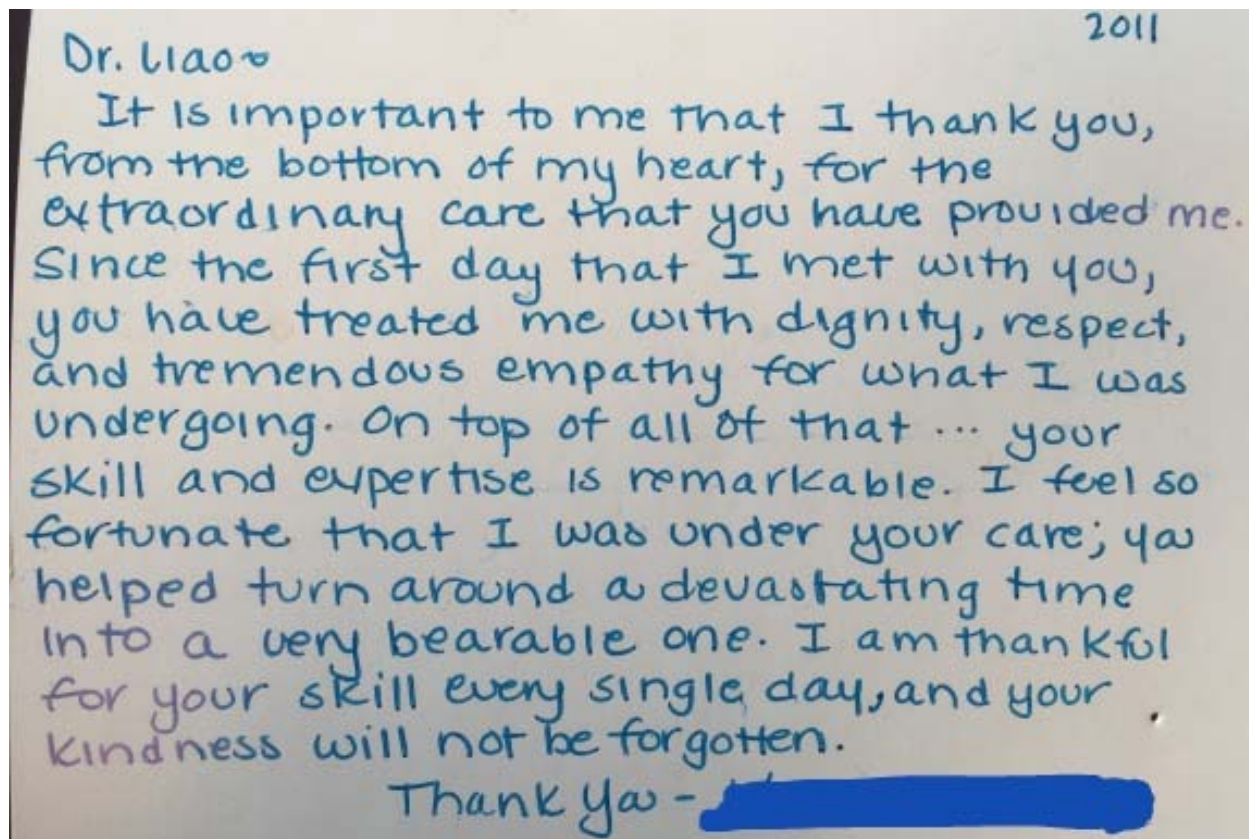 2011
Dr. Liao~
It is important to me that I thank you,
from the bottom of my heart, for the
extraordinary care that you have provided me.
Since the first day that I met with you,
you have treated me with dignity, respect,
and tremendous empathy for what I was
undergoing. On top of all of that ... your
skill and expertise is remarkable. I feel so
fortunate that I was under your care; you
helped turn around a devastating time
into a very bearable one. I am thankful
for your skill every single day, and your
kindness will not be forgotten.
Thank you -